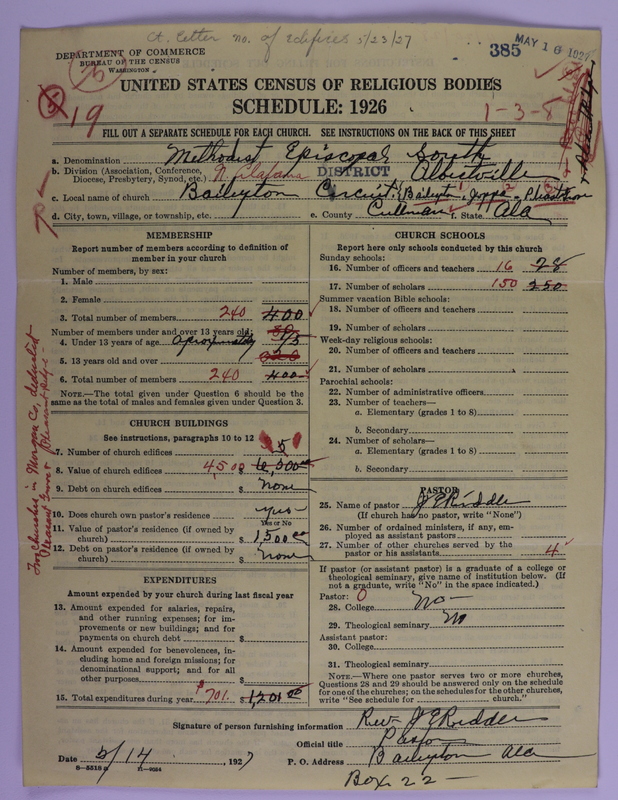 ct. letter no. of edifices 5/23/27
385 MAY 16 1927
DEPARTMENT OF COMMERCE
BUREAU OF THE CENSUS
WASHINGTON
UNITED STATES CENSUS OF RELIGIOUS BODIES
SCHEDULE: 1926
19
1-3-8
FILL OUT A SEPARATE SCHEDULE FOR EACH CHURCH. SEE INSTRUCTIONS ON THE BACK OF THIS SHEET
a. Denomination Methodist Episcopal South
b. Division (Association, Conference, Diocese, Presbytery, Synod, etc.) N. Alabama DISTRICT Albertville
c. Local name of church Baileyton Circuit (Baileyton 1 Joppa 2 Pleasant Grove
d. City, town, village, or township, etc. e. County Cullman f. State Ala
MEMBERSHIP
Report number of members according to definition of
member in your church
Number of members, by sex:
1. Male
2. Female
3. Total number of members 240 400
Number of members under and over 13 years old:
4. Under 13 years of age aproximatly 75
5. 13 years old and over
6. Total number of members 240 400
NOTE.—The total given under Question 6 should be
same as the total of males and females given under Question 3.
CHURCH BUILDINGS
See instructions, paragraphs 10 to 12
7. Number of church edifices 5
8. Value of church edifices 4500 $ 6,500
9. Debt on church edifices $ none
10. Does church own pastor's residence yes
Yes or No
11. Value of pastor's residence (if owned by
church) $ 1,500.00
12. Debt on pastor's residence (if owned by
church) $ none
EXPENDITURES
Amount expended by your church during last fiscal year
13. Amount expended for salaries, repairs,
and other running expenses; for im-
provements or new buildings; and for
payments on church debt $
14. Amount expended for benevolences, in-
cluding home and foreign missions; for
denominational support; and for all
other purposes $
15. Total expenditures during year $701. 1,201.00
CHURCH SCHOOLS
Report here only schools conducted by this church
Sunday schools:
16. Number of officers and teachers 16 28
17. Number of scholars 150 250
Summer vacation Bible schools:
18. Number of officers and teachers
19. Number of scholars
Week-day religious schools:
20. Number of officers and teachers
21. Number of scholars
Parochial schools:
22. Number of administrative officers
23. Number of teachers—
a. Elementary (grades 1 to 8)
b. Secondary
24. Number of scholars—
a. Elementary (grades 1 to 8)
b. Secondary
PASTOR
25. Name of pastor J E Riddle
(If church has no pastor, write "None")
26. Number of ordained ministers, if any, em-
ployed as assistant pastors
27. Number of other churches served by the
pastor or his assistants 4
If pastor (or assistant pastor) is a graduate of a college or
theological seminary, give name of institution below. (If
not a graduate, write "No" in the space indicated.)
Pastor: 0
28. College No—
29. Theological seminary No
Assistant pastor:
30. College
31. Theological seminary
NOTE.—Where one pastor serves two or more churches,
Questions 28 and 29 should be answered only on the schedule
for one of the churches; on the schedules for the other churches,
write "See schedule for church."
Signature of person furnishing information Rev J E Riddle
Official title Pastor
Date 5/14, 1927 P. O. Address Baileyton Ala
8—5518 a 11—9054
Box 22—